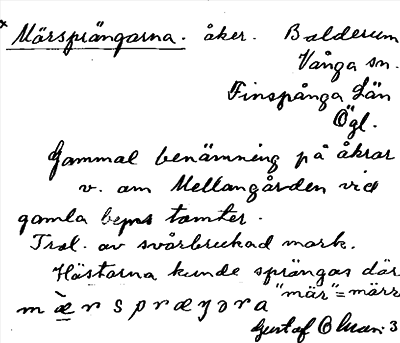 Märsprängarna. åker. Balderum
Vånga sn.
Finspånga Län
Ögl.
Gammal benämning på åkrar
v. om Mellangården vid
gamla tomter.
Trol. av svårbrukad mark.
Hästarna kunde sprängas där
"mär"=märr
Gustaf 3